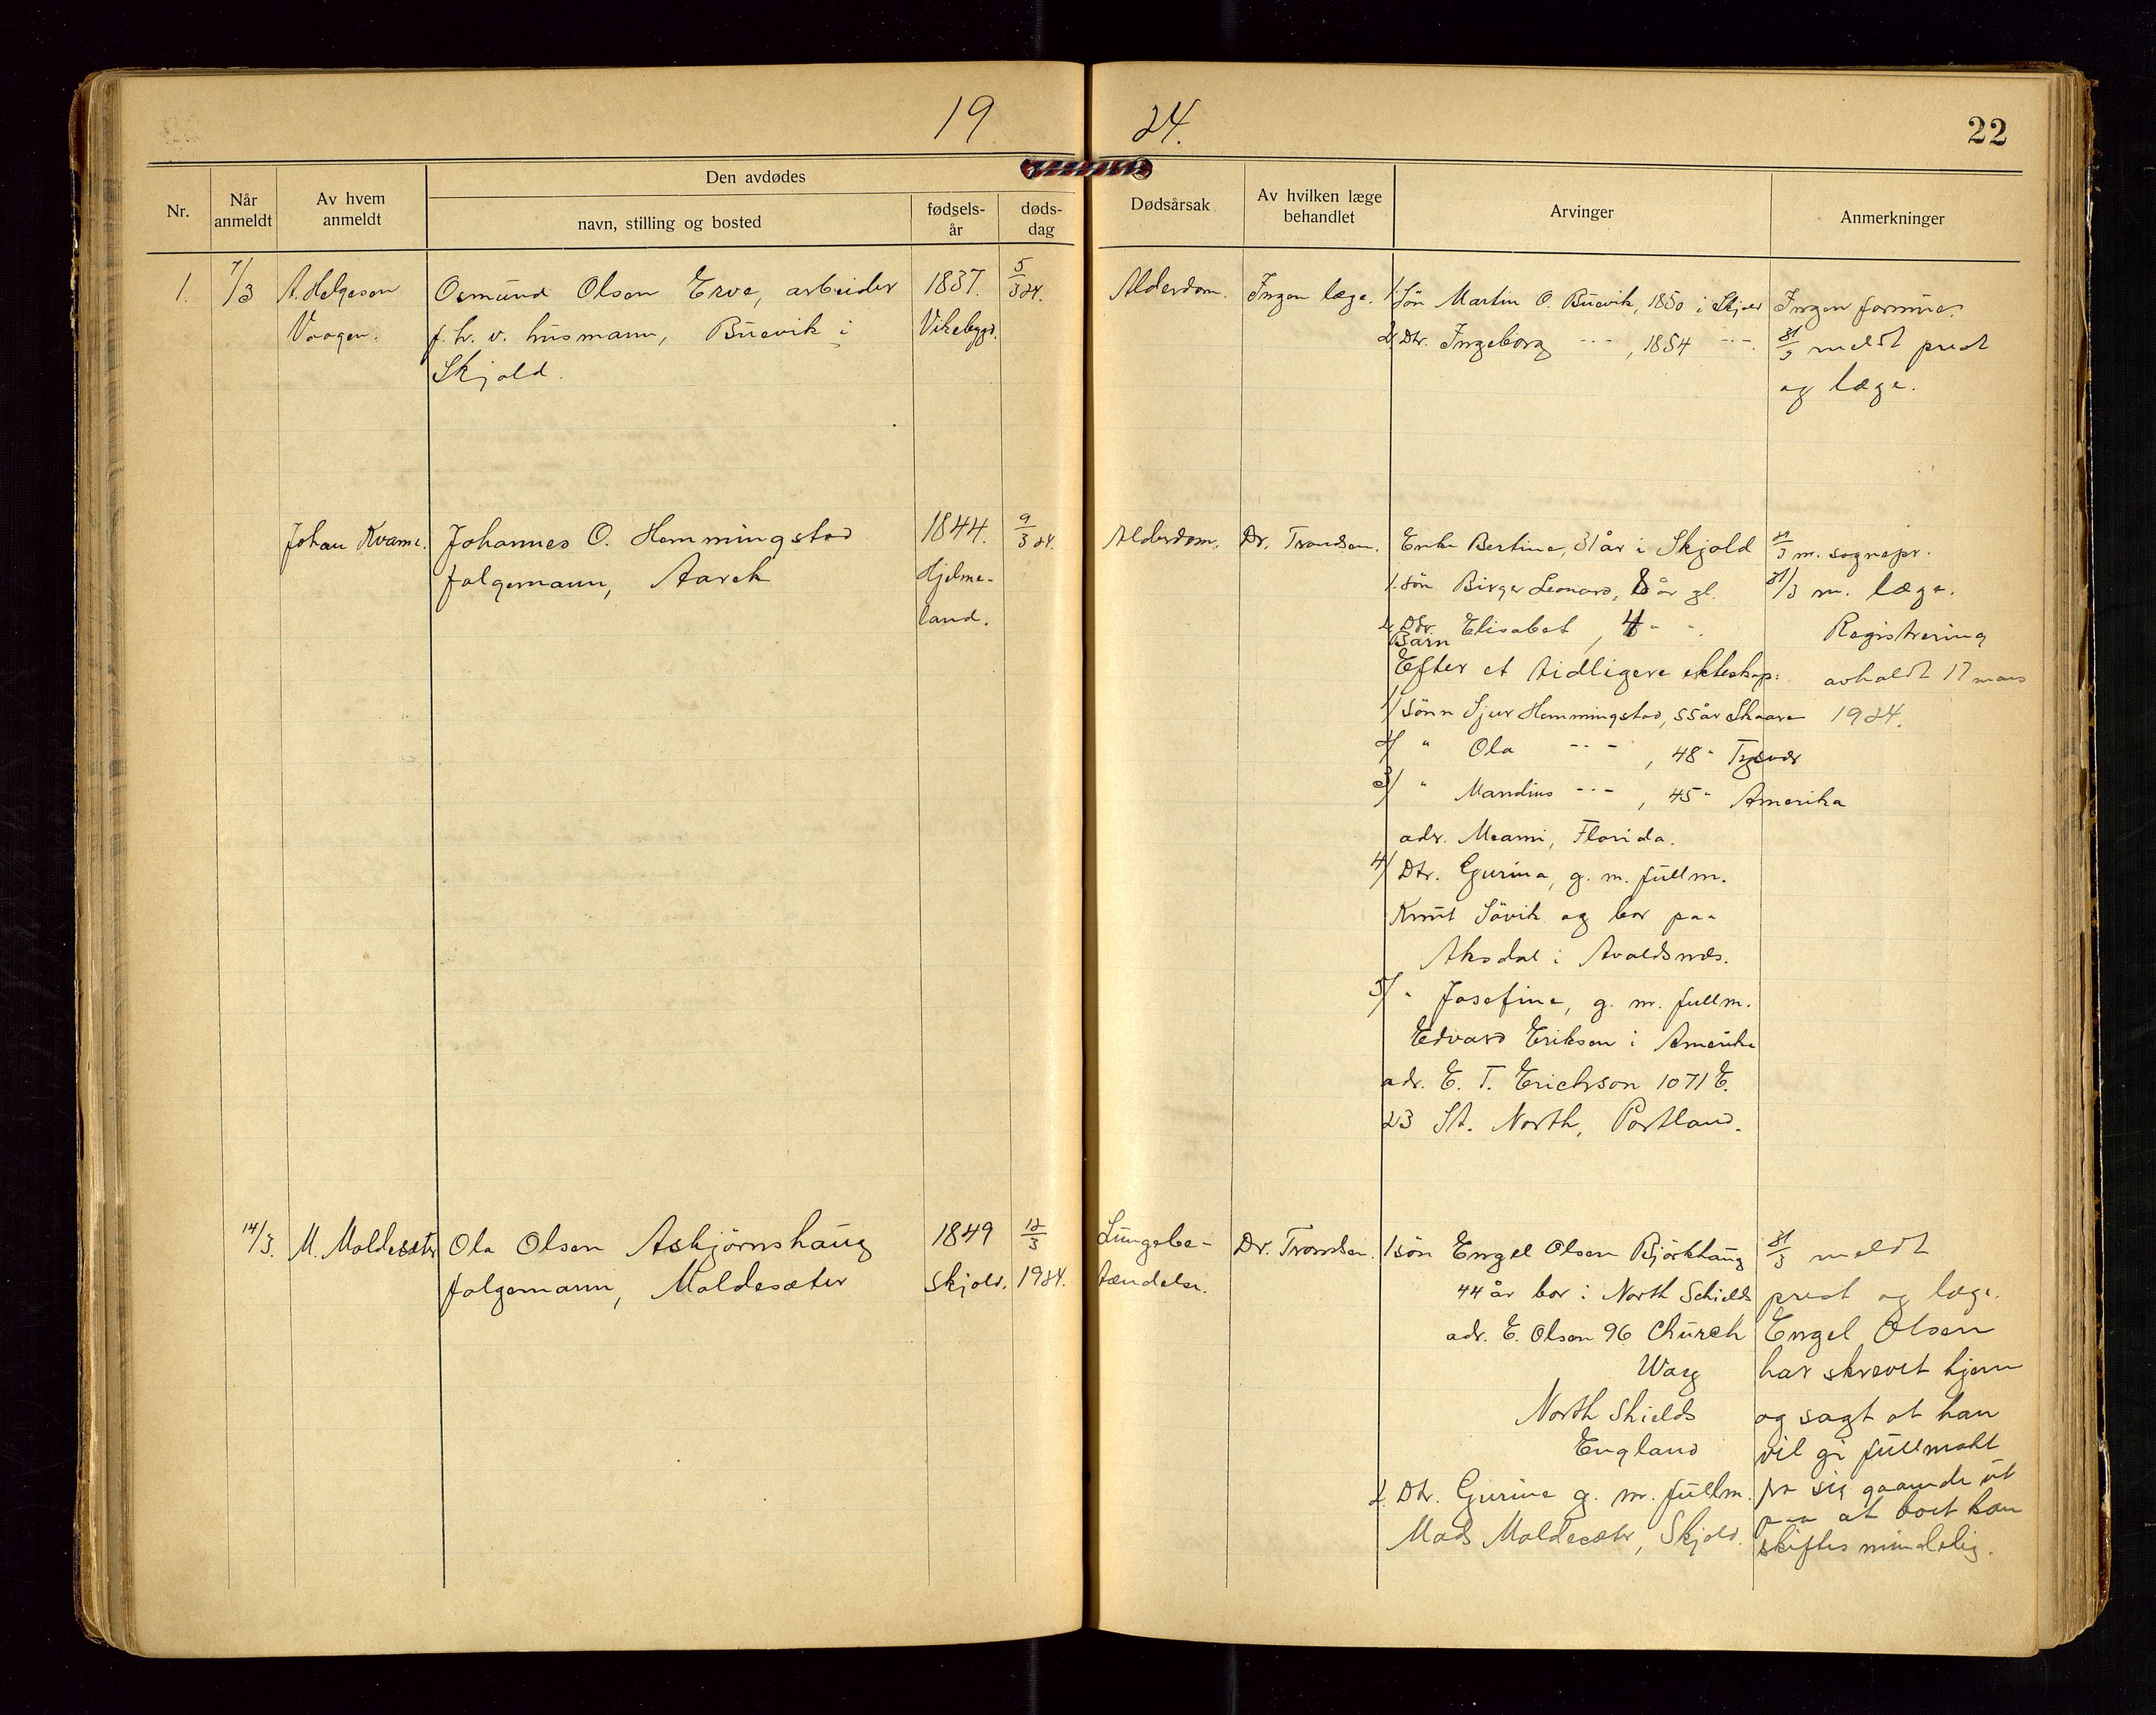 1924.
22
Nr.
Når anmeldt
Av hvem anmeldt
Den avdødes
navn, stilling og bosted
fødsels-år
døds-dag
Dødsårsak
Av hvilken læge behandlet
Arvinger
Anmerkninger
1. 7/3 A. Helgesen
Vaagen.
Osmund Olsen Erve, arbeider
f. h. v. husmann, Buevik i
Skjold.
1837.
Vikebygd.
5/3 24.
Alderdom.
Ingen læge.
1. Søn Martin O. Buevik, 1850 i Skjold
2. Dtr. Ingeborg -"- , 1854 -"-
Ingen formue.
31/3 meldt prest
og læge.
Johan Kvame.
Johannes O. Hemmingstad
folgemann, Aarek
1844.
Hjelme-
land.
9/3 24.
Alderdom.
Dr. Trondsen.
Enke Bertine, 31 år i Skjold
1. Søn Birger Leonard, 8 år gl.
2. Dtr. Elisabet , 4 " "
Barn
Efter et tidligere ekteskap:
1/ Sønn Sjur Hemmingstad, 55 år Skaare
2/ " Ola -"- , 48 " Tysvær
3/ " Mandius -"- , 45 " Amerika
adr. Meami, Florida.
4/ Dtr. Gurina, g. m. fullm.
Knut Sövik og bor paa
Aksdal i Avaldsnes.
5/ " Josefine, g. m. fullm.
Edvard Eriksen i Amerika
adr. E. T. Erichson 1071 E.
23 St. North, Portland.
/3 m. sognepr.
31/3 m. læge.
Registrering
avholdt 17 mars
1924.
14/3. M. Moldesæter
Ola Olsen Asbjørnshaug
folgemann, Moldesæter
1849
Skjold.
12/3
1924.
Lungebe-
tændelse.
Dr. Trondsen.
1 søn Engel Olsen Bjørkhaug
44 år bor i North Schields
adr. E. Olsen 96 Church
Way
North Shields
England
2. Dtr. Gurine g. m. fullm.
Mads Moldesæter, Skjold.
31/3 meldt
prest og læge.
Engel Olsen
har skrevet hjem
og sagt at han
vil gi fullmakt
fra sig gaaende ut
paa at boet kan
skiftes mindelig.